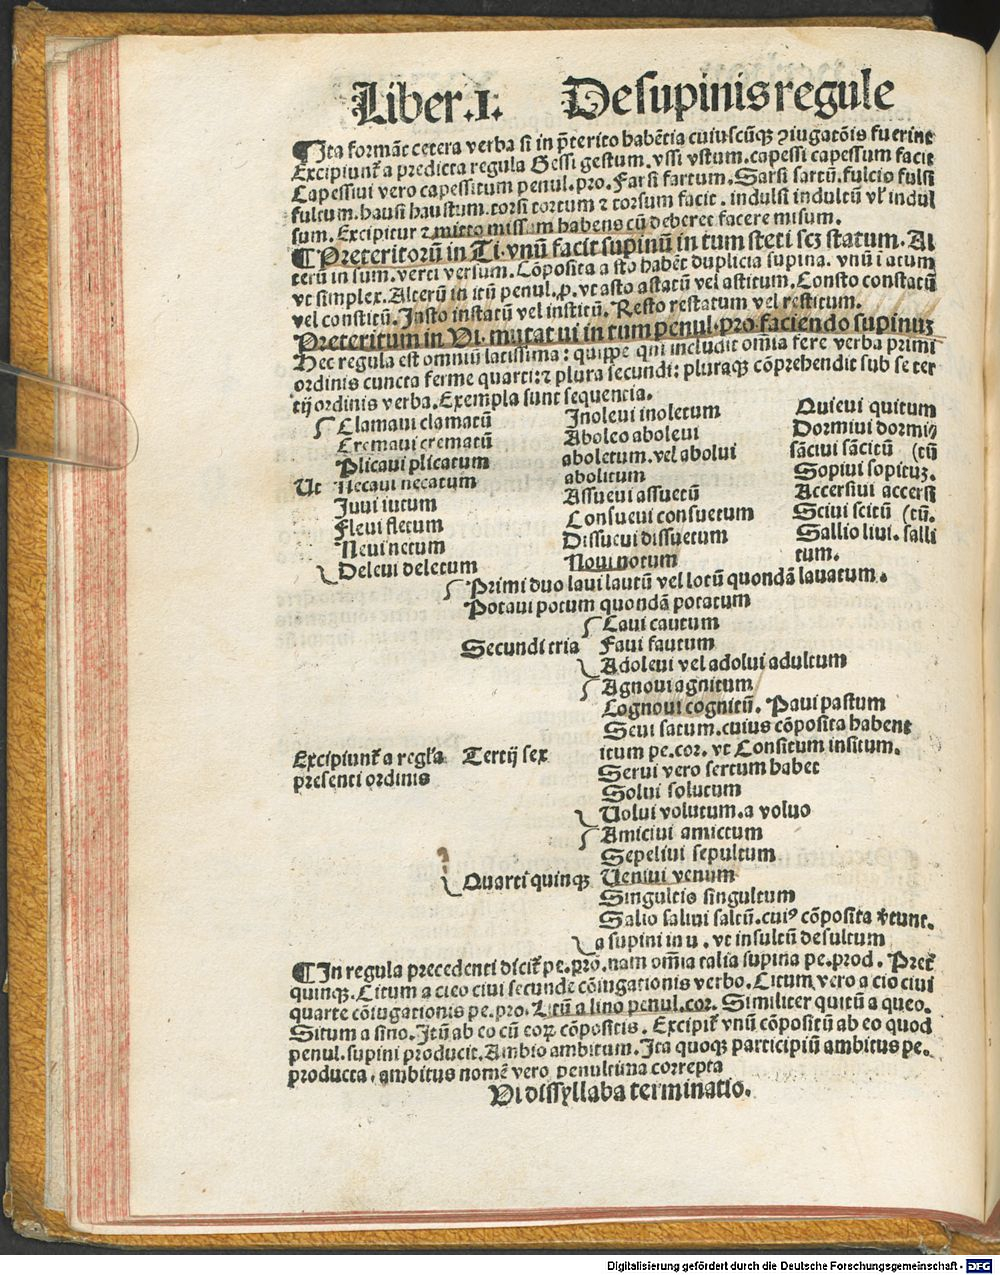 Liber .I. De supinis regule
¶ Ita formāt cetera verba si in p̄terito habētia cuiuscūqꝫ ꝯiugatōis fuerint
Excipiunt̄ a predicta regula Gessi gestum. vssi vstum. capessi capessum facit
Capessiui vero capessitum penul. pro. Farsi fartum. Sarsi sartū. fulcio fulsi
fultum. hausi haustum. torsi tortum ⁊ torsum facit. indulsi indultū vl' indul
sum. Excipitur ⁊ mitto missum habens cū deberet facere misum.
¶ Preteritorū in Ti. vnū facit supinū in tum steti scꝫ statum. Al
terū in sum. verti versum. Cōposita a sto habēt duplicia supina. vnū ī atum
vt simplex. Alterū in itū penul. p. vt asto astatū vel astitum. Consto constatū
vel constitū. Insto instatū vel institū. Resto restatum vel restitum.
Preteritum in Vi. mutat ui in tum penul. pro. faciendo supinuꝫ
Hec regula est omniū latissima: quippe qui includit om̄ia fere verba primi
ordinis cuncta ferme quarti: ⁊ plura secundi: pluraqꝫ cōprehendit sub se ter
tij ordinis verba. Exempla sunt sequencia.
Ut Clamaui clamatū
Cremaui crematū
Plicaui plicatum
Necaui necatum
Iuui iutum
Fleui fletum
Neui netum
Deleui deletum
Inoleui inoletum
Aboleo aboleui
aboletum. vel abolui
abolitum
Assueui assuetū
Consueui consuetum
Dissueui dissuetum
Noui notum
Quieui quitum
Dormiui dormi⸗
sāciui sācitū (tū
Sopiui sopituꝫ.
Accersiui accersi
Sciui scitū (tū.
Sallio liui. salli
tum.
Excipiunt̄ a regl'a
presenti ordinis
Primi duo laui lautū vel lotū quondā lauatum.
Potaui potum quondā potatum
Secundi tria Caui cautum
Faui fautum
Adoleui vel adolui adultum
Tertij sex Agnoui agnitum
Cognoui cognitū. Paui pastum
Seui satum. cuius cōposita habent
itum pe. cor. vt Consitum insitum.
Serui vero sertum habet
Solui solutum
Uolui volutum. a voluo
Quarti quinqꝫ Amiciui amictum
Sepeliui sepultum
Ueniui venum
Singultis singultum
Salio saliui saltū. cui⁹ cōposita v̄tunt.
a supini in u. vt insultū desultum
¶ In regula precedenti dicit̄ pe. prō. nam om̄ia talia supina pe. prod. Pret̄
quinqꝫ. Citum a cieo ciui secunde cōiugationis verbo. Citum vero a cio ciui
quarte cōiugationis pe. pro. Litū a lino penul. cor. Similiter quitū a queo.
Situm a sino. Itū ab eo cū eoꝝ cōpositis. Excipit̄ vnū cōpositū ab eo quod
penul. supini producit. Ambio ambitum. Ita quoqꝫ participiū ambitus pe.
producta. ambitus nomē vero penultima correpta
Vi dissyllaba terminatio.
Digitalisierung gefördert durch die Deutsche Forschungsgemeinschaft - DFG